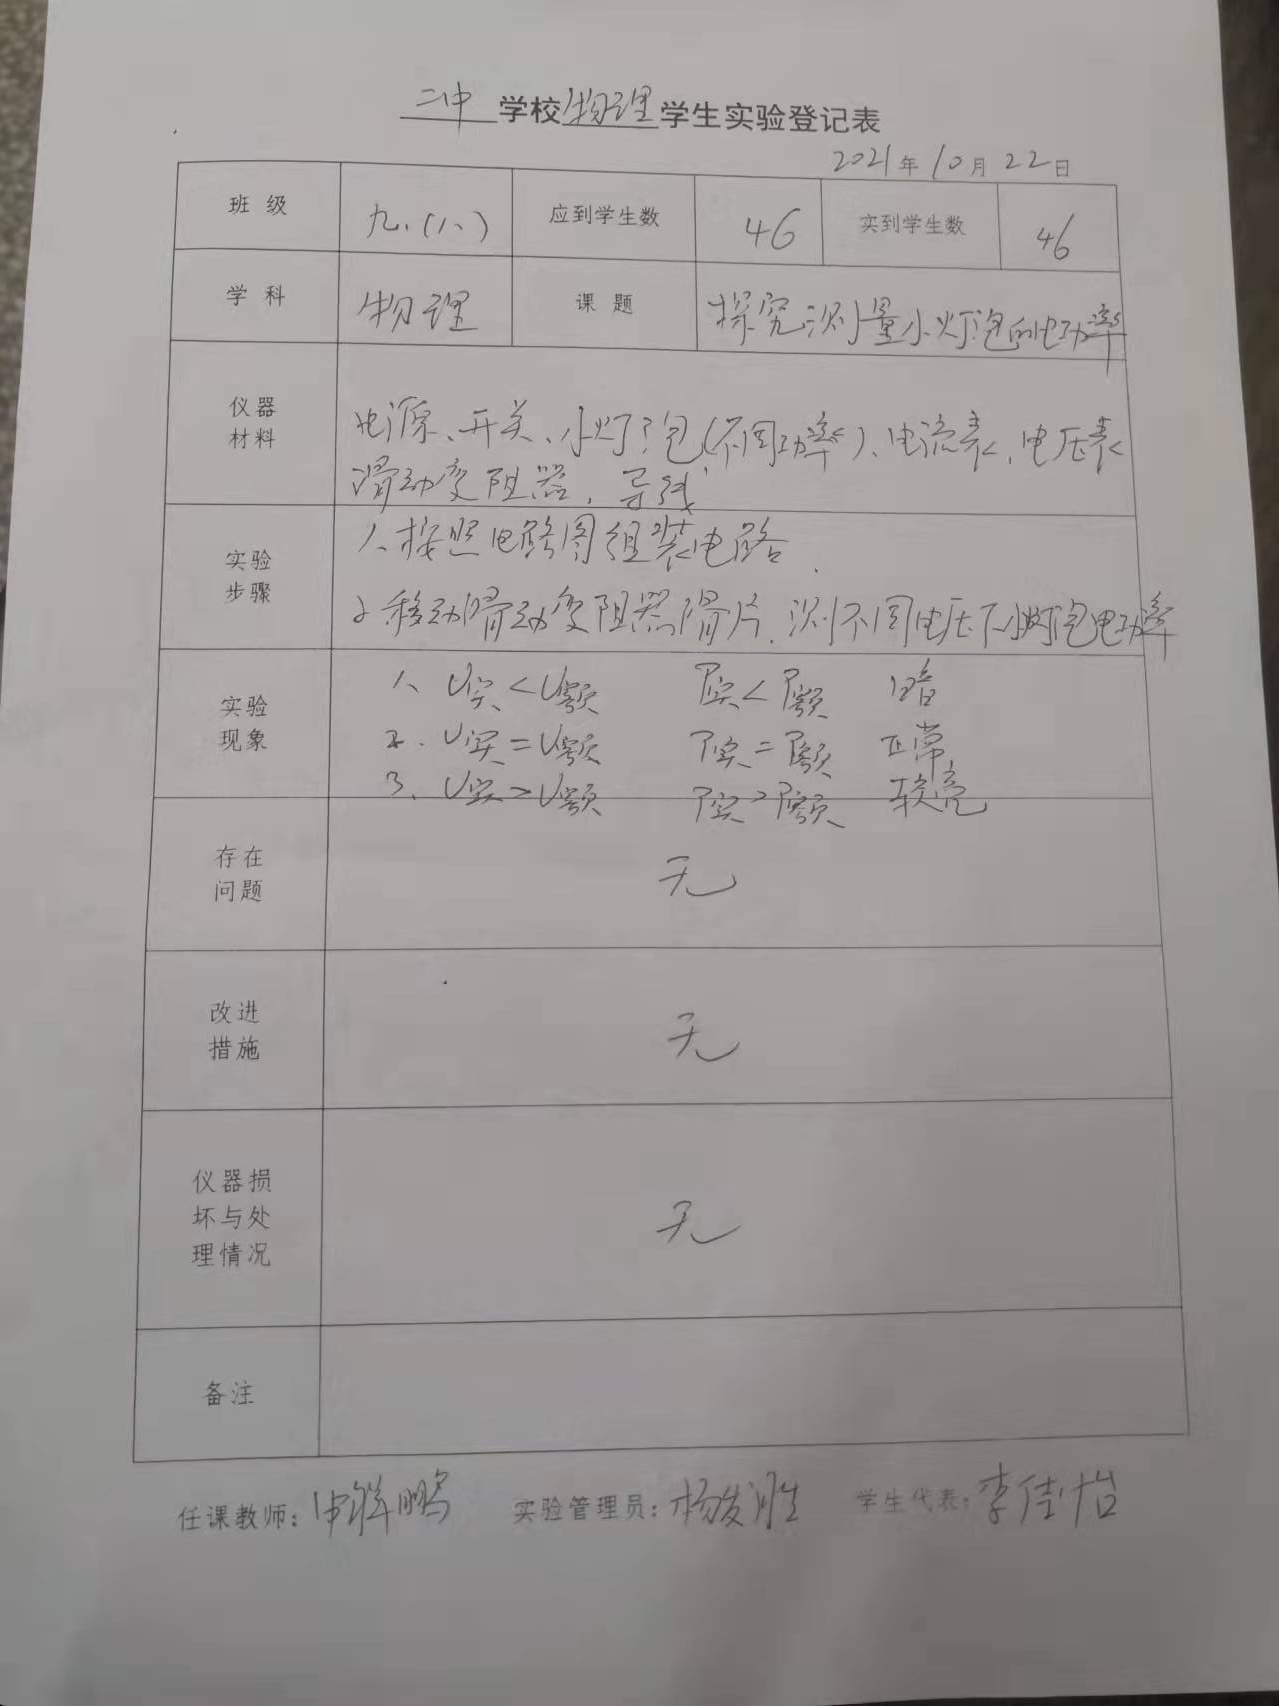 二中学校物理学生实验登记表
2021年10月22日
班级 九.(八) 应到学生数 46 实到学生数 46
学科 物理 课题 探究测量小灯泡的电功率
仪器材料 电源、开关、小灯泡(不同功率)、电流表、电压表
滑动变阻器、导线
实验步骤 1、按照电路图组装电路.
2.移动滑动变阻器滑片.测不同电压下小灯泡电功率
实验现象 1、U实<U额 P实<P额 暗
2、U实=U额 P实=P额 正常
3、U实>U额 P实>P额 较亮
存在问题 无
改进措施 无
仪器损坏与处理情况 无
备注
任课教师: 申鹏 实验管理员: 杨发胜 学生代表: 李佳怡